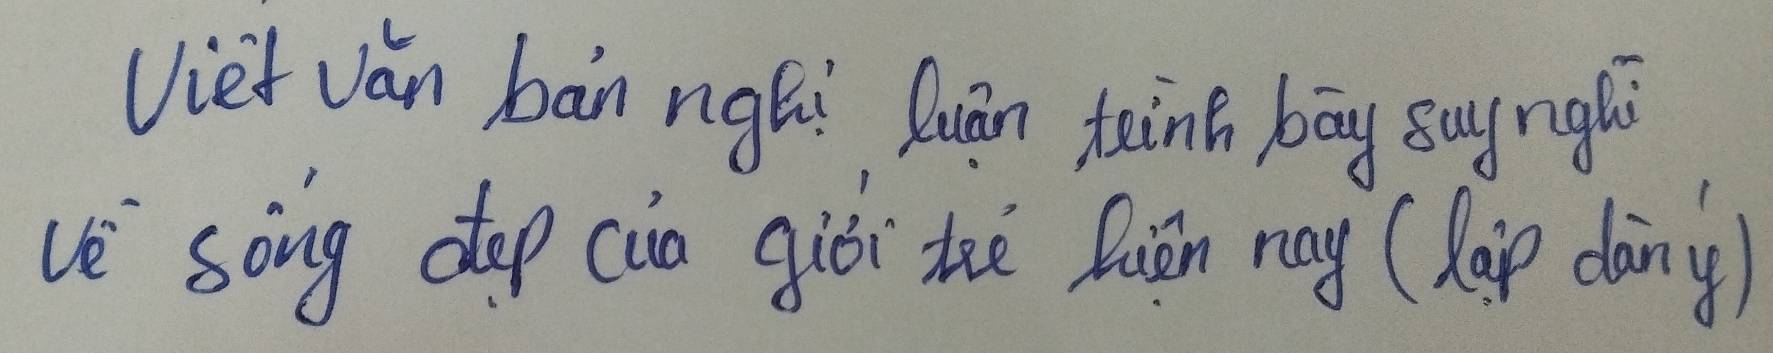 Viết văn bản nghị luận trình bày suy nghĩ
về sống đẹp của giới trẻ hiện nay (lập dàn ý)